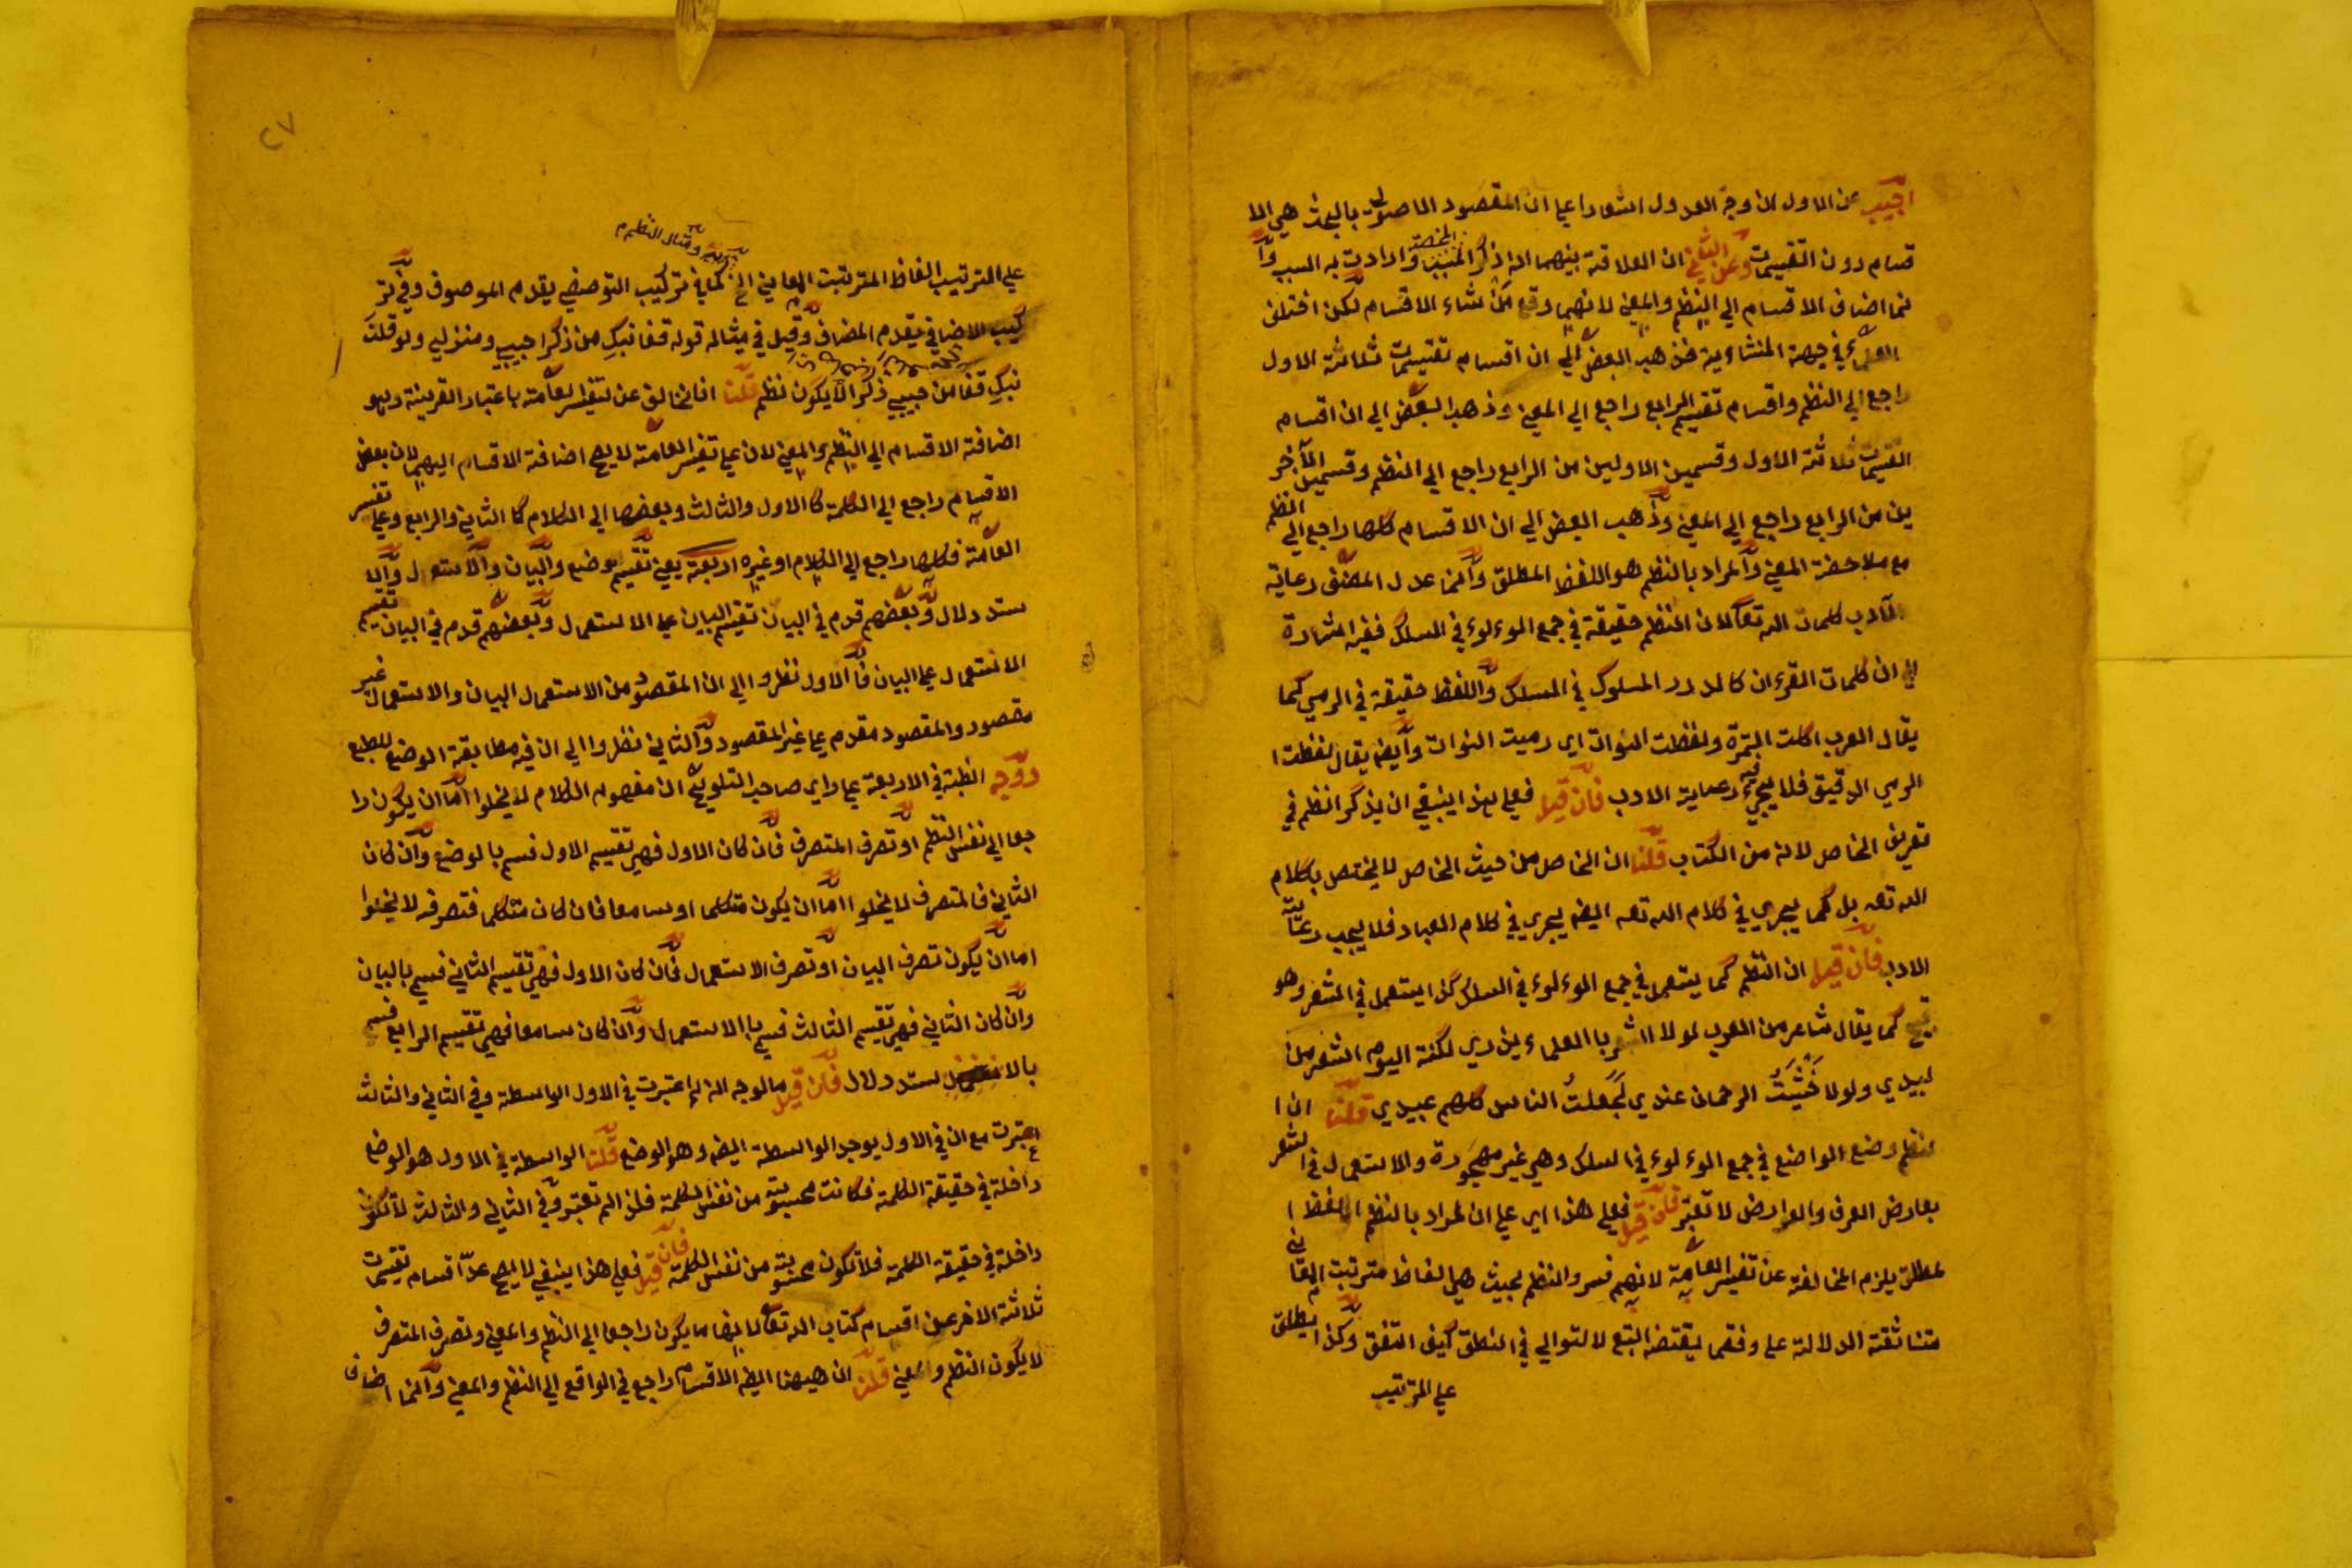 اجيب عن الاول ان وجه العدول اشعارا على ان المقصود الاصولى بالبحث هي الا
قسام دون التقسيمات وعن الثاني ان العلاقة بينهما انه ذكر المسبب واراد به السبب وا
نما اضاف الاقسام الي النظم والمعني لانهما وقع منشاء الاقسام لكن اختلف
العلماء في جهة المنشائية فذهب البعض الي ان اقسام تقسيمات ثلاثة الاول
راجع الي النظم واقسام تقسيم الرابع راجع الي المعني وذهب البعض الي ان اقسام
التقسيمات ثلاثة الاول وقسمين الاولين من الرابع راجع الي النظم وقسمين الاخر
ين من الرابع راجع الي المعني وذهب البعض الي ان الاقسام كلها راجع الي النظم
مع ملاحظة المعني والمراد بالنظم هو اللفظ المطلق وانما عدل المصنف رعاية
لآداب كلمات الله تعا لان النظم حقيقة في جمع الموءلوء في السلك ففيه اشارة
الي ان كلمات القرءان كالدرر المسلوك في المسلك واللفظ حقيقة في الرمي كما
يقال العرب اكلت التمرة ولفظت النوات اي رميت النوات وايضه يقال لفظت ا
الرمي الدقيق فلا يجري فيه رعاية الادب فان قيل فعلي هذا ينبغي ان يذكر النظم في
تعريف الخاص لانه من الكتاب قلنا ان الخاص من حيث الخاص لا يختص بكلام
الله تعه بل كما يجري في كلام الله تعه ايضه يجري في كلام العباد فلا يجب رعاية
الادب فان قيل ان النظم كما يستعمل في جمع الموءلوء في السلك كذا يستعمل في الشعر وهو
قبيح كما يقال شاعر من العرب لولا الشعر بالعلماء يزري لكنت اليوم اشعر من
لبيدي ولولا خشيت الرحمان عندي لجعلت الناس كلهم عبيدي قلنا ان ا
لنظم وضع الواضع في جمع الموءلوء في السلك وهي غير مهجورة والاستعمال في الشعر
بعارض العرف والعوارض لا تعتبر فان قيل فعلي هذا اي علي ان المراد بالنظم اللفظ ا
لمطلق يلزم المخالفة عن تفسير العامة لانهم فسروا النظم بحيث هي الفاظ مترتبت المعاني
متناثقة الدلالة علي وفق ما يقتضه التبع لا لتوالي في النطق كيف اتفق وكذا يطلق
علي الترتيب
٢٧
ومثال النظم
علي الترتيب الفاظ المترتبت المعاني الخ كما في تركيب التوصيفي يقدم الموصوف وفي تر
كيب الاضافي يقدم المضاف وقيل في مثاله قوله قفا نبك من ذكرا حبيبي ومنزلي ولو قلت
نبك قفا من حبيبي ذكرا لا يكون نظم قلنا ان المخالف عن تفسير العامة باعتبار القرينة وهو
اضافة الاقسام الي النظم والمعني لان علي تفسير العامة لا يصح اضافة الاقسام اليهما لان بعض
الاقسام راجع الي الكلمة كالاول والثالث وبعضها الي الكلام كالثاني والرابع وعلي تفسير
العامة فكلها راجع الي الكلام او غيره اربعة يعني تقسيم وضع والبيان والاستعمال والا
ستدلال وبعضهم قدم في البيان تقسيم البيان علي الاستعمال وبعضهم قدم في البيان تقسيم
الاستعمال علي البيان فالاول نظروا الي ان المقصود من الاستعمال البيان والاستعمال غير
مقصود والمقصود مقدم علي غير المقصود والثاني نظروا الي ان فيه مطابقة الوضع للطبع
ووجه الظبة في الاربعة علي راي صاحب التلويح ان مفهوم الكلام لا يخلوا اما ان يكون را
جعا الي نفس النظم او تصرف المتصرف فان كان الاول فهي تقسيم الاول قسم بالوضع وان كان
الثاني فالمتصرف لا يخلوا اما ان يكون متكلما او سامعا فان كان متكلما فتصرفه لا يخلوا
اما ان يكون تصرف البيان او تصرف الاستعمال فان كان الاول فهي تقسيم الثاني قسم بالبيان
وان كان الثاني فهي تقسيم الثالث قسم بالاستعمال وان كان سامعا فهي تقسيم الرابع قسم
بالاستدلال فان قيل ما الوجه انه لم اعتبرت في الاول الواسطة وفي الثاني والثالث
اعتبرت مع ان في الاول يوجد الواسطة ايضه وهو الوضع قلنا الواسطة في الاول هو الوضع
داخلة في حقيقة الكلمة فكانت محسوبة من نفس الكلمة فلذا لم تعتبر وفي الثاني والثالث لا تكون
داخلة في حقيقة الكلمة فلا تكون محسوبة من نفس الكلمة فان قيل فعلي هذا ينبغي لا يصح عد اقسام تقسيمات
ثلاثة الاخر من اقسام كتاب الله تعا لانها ما يكون راجعا الي النظم والمعني وتصرف المتصرف
لا يكون النظم والمعني قلنا ان هيهنا ايضه الاقسام راجع في الواقع الي النظم والمعني وانما اضاف